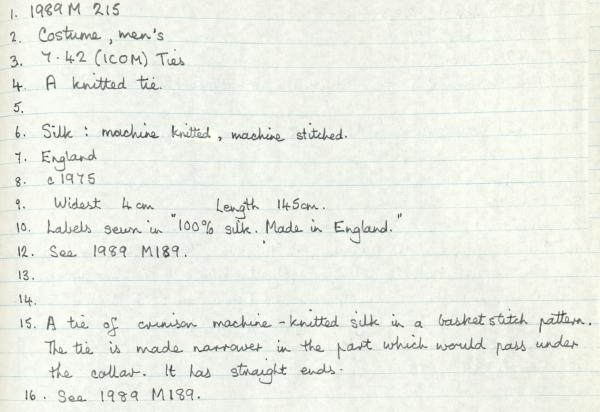 1. 1989 M 215
2. Costume, men's
3. 7.42 (ICOM) Ties
4. A knitted tie.
5.
6. Silk : machine knitted, machine stitched.
7. England
8. c 1975
9. Widest 4 cm Length 145cm.
10. Labels sewn in "100% silk. Made in England."
12. See 1989 M189.
13.
14.
15. A tie of crimison machine-knitted silk in a basket stitch pattern.
The tie is made narrower in the part which would pass under
the collar. It has straight ends.
16. See 1989 M189.